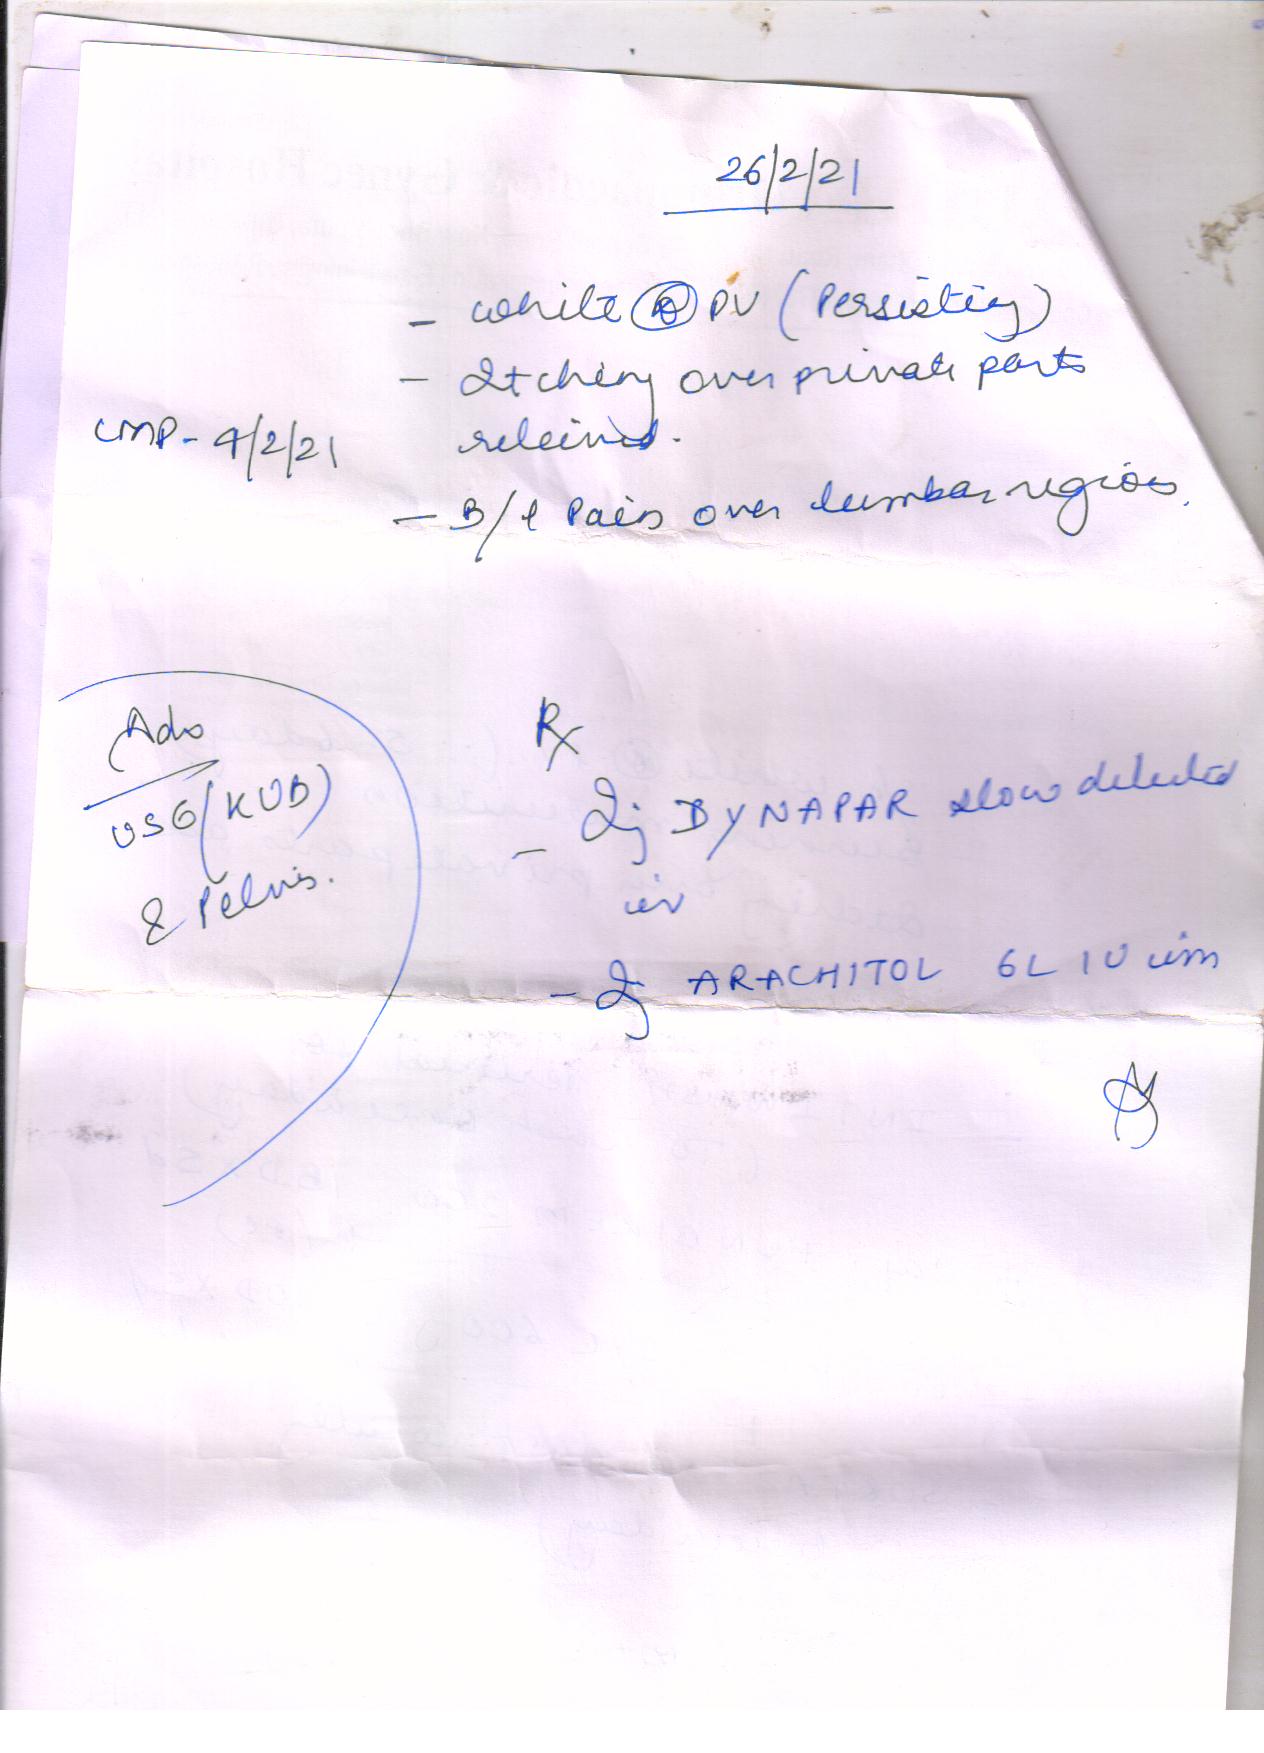 26/2/21
- White Ⓓ PV (Persisting)
- Itching over private parts
relieved.
LMP - 4/2/21
- B/L Pain over lumbar region.
Adv
USG (KUB)
& Pelvis.
Rx
- Inj DYNAPAR slow diluted
iv
- Inj ARACHITOL 6L IU im